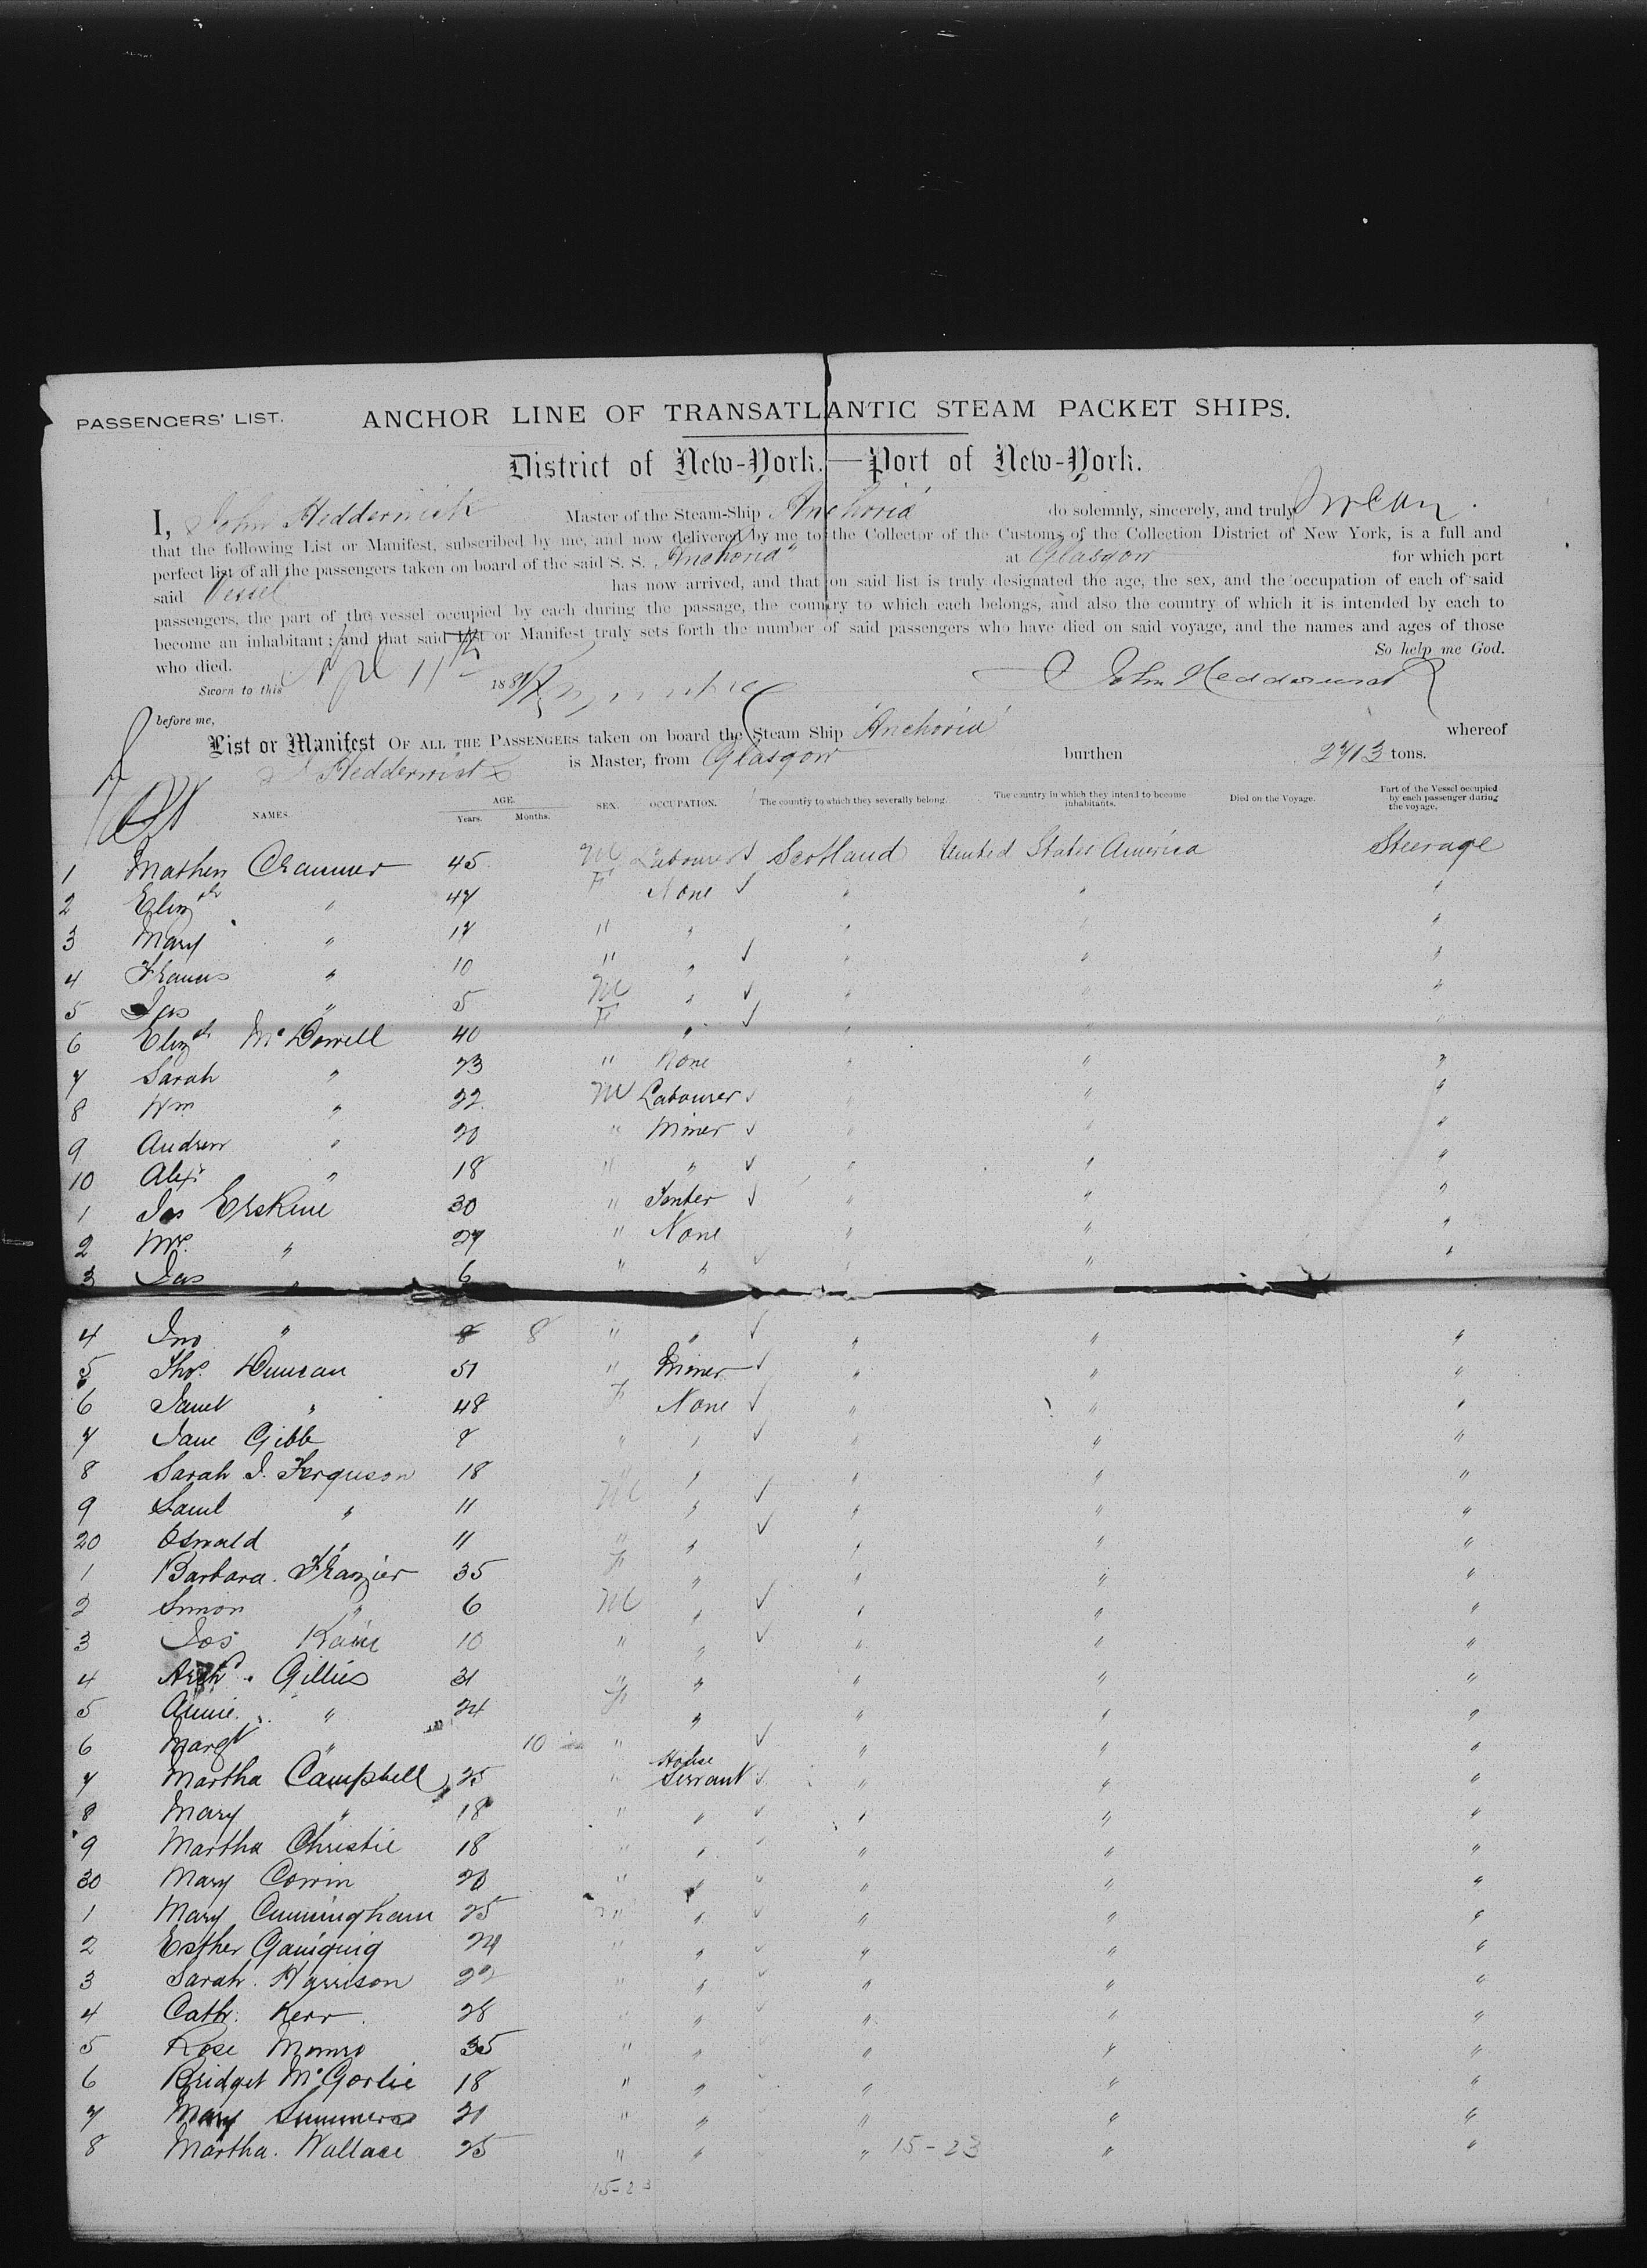 PASSENGERS' LIST. ANCHOR LINE OF TRANSATLANTIC STEAM PACKET SHIPS.
District of New-York.—Port of New-York.
I, John Hedderwick Master of the Steam-Ship Anchoria do solemnly, sincerely, and truly swear.
that the following List or Manifest, subscribed by me, and now delivered by me to the Collector of the Customs of the Collection District of New York, is a full and
perfect list of all the passengers taken on board of the said S. S. "Anchoria" at Glasgow for which port
said Vessel has now arrived, and that on said list is truly designated the age, the sex, and the occupation of each of said
passengers, the part of the vessel occupied by each during the passage, the country to which each belongs, and also the country of which it is intended by each to
become an inhabitant; and that said List or Manifest truly sets forth the number of said passengers who have died on said voyage, and the names and ages of those
who died. So help me God.
Sworn to this Apl 11th 188 John Hedderwick
before me,
List or Manifest OF ALL THE PASSENGERS taken on board the Steam Ship "Anchoria" whereof
J Hedderwick is Master, from Glasgow burthen 2713 tons.
NAMES. AGE. Years. Months. SEX. OCCUPATION. The country to which they severally belong. The country in which they intend to become inhabitants. Died on the Voyage. Part of the Vessel occupied by each passenger during the voyage.
1 Mathew 45 M Labourer Scotland United States America Steerage
2 Elizth " 47 F None " " "
3 Mary " 17 " " " " "
4 Frances " 10 " " " " "
5 Jas " 5 M " " " "
6 Elizth McDowell 40 F " " " "
7 Sarah " 23 " None " " "
8 Wm " 22 M Labourer " " "
9 Andrew " 20 " Miner " " "
10 Alexr " 18 " " " " "
1 Jas Erskine 30 " " " "
2 Mrs. " 27 " None " " "
3 Jas " 6 " " " " "
4 Jno " 8 8 " " " " "
5 Thos. Duncan 51 " Miner " " "
6 Janet " 48 F None " " "
7 Jane Gibb 8 " " " " "
8 Sarah J. Ferguson 18 " " " " "
9 Saml " 11 M " " " "
20 Oswald " 11 " " " " "
1 Barbara Frazier 35 F " " " "
2 Simon " 6 M " " " "
3 Jos Kane 10 " " " " "
4 Archd. Gillies 31 " " " " "
5 Annie " 24 F " " " "
6 Margt " 10 " " " "
7 Martha Campbell 25 " House Servant " " "
8 Mary " 18 " " " " "
9 Martha Christie 18 " " " " "
30 Mary Cowin 20 " " " " "
1 Mary Cunningham 25 " " " " "
2 Esther 24 " " " " "
3 Sarah Harrison 22 " " " " "
4 Cath. Kerr 28 " " " " "
5 Rose Munro 35 " " " " "
6 Bridget McGorlie 18 " " " " "
7 Mary Summers 21 " " " " "
8 Martha Wallace 25 " " " 15-23 " "
15-23